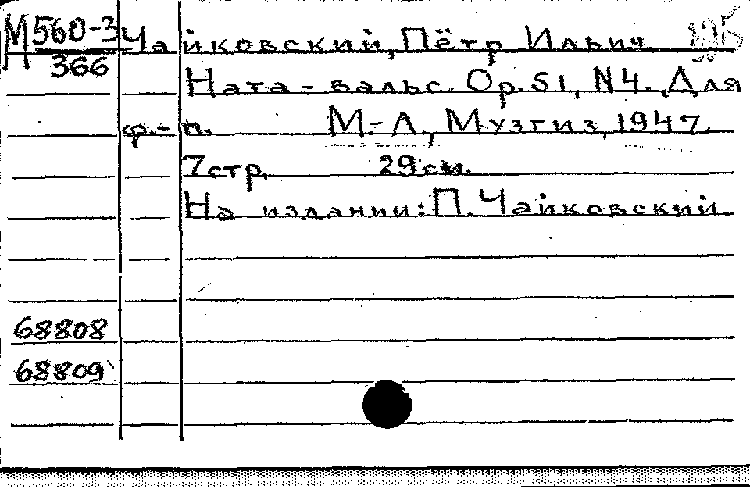 М560-3 Чайковский, Пётр Ильич
366 Ната-вальс. Op. 51, N4. Для
ф.-п. М.-Л., Музгиз, 1947.
7стр. 29см.
На издании: П. Чайковский
68808
68809